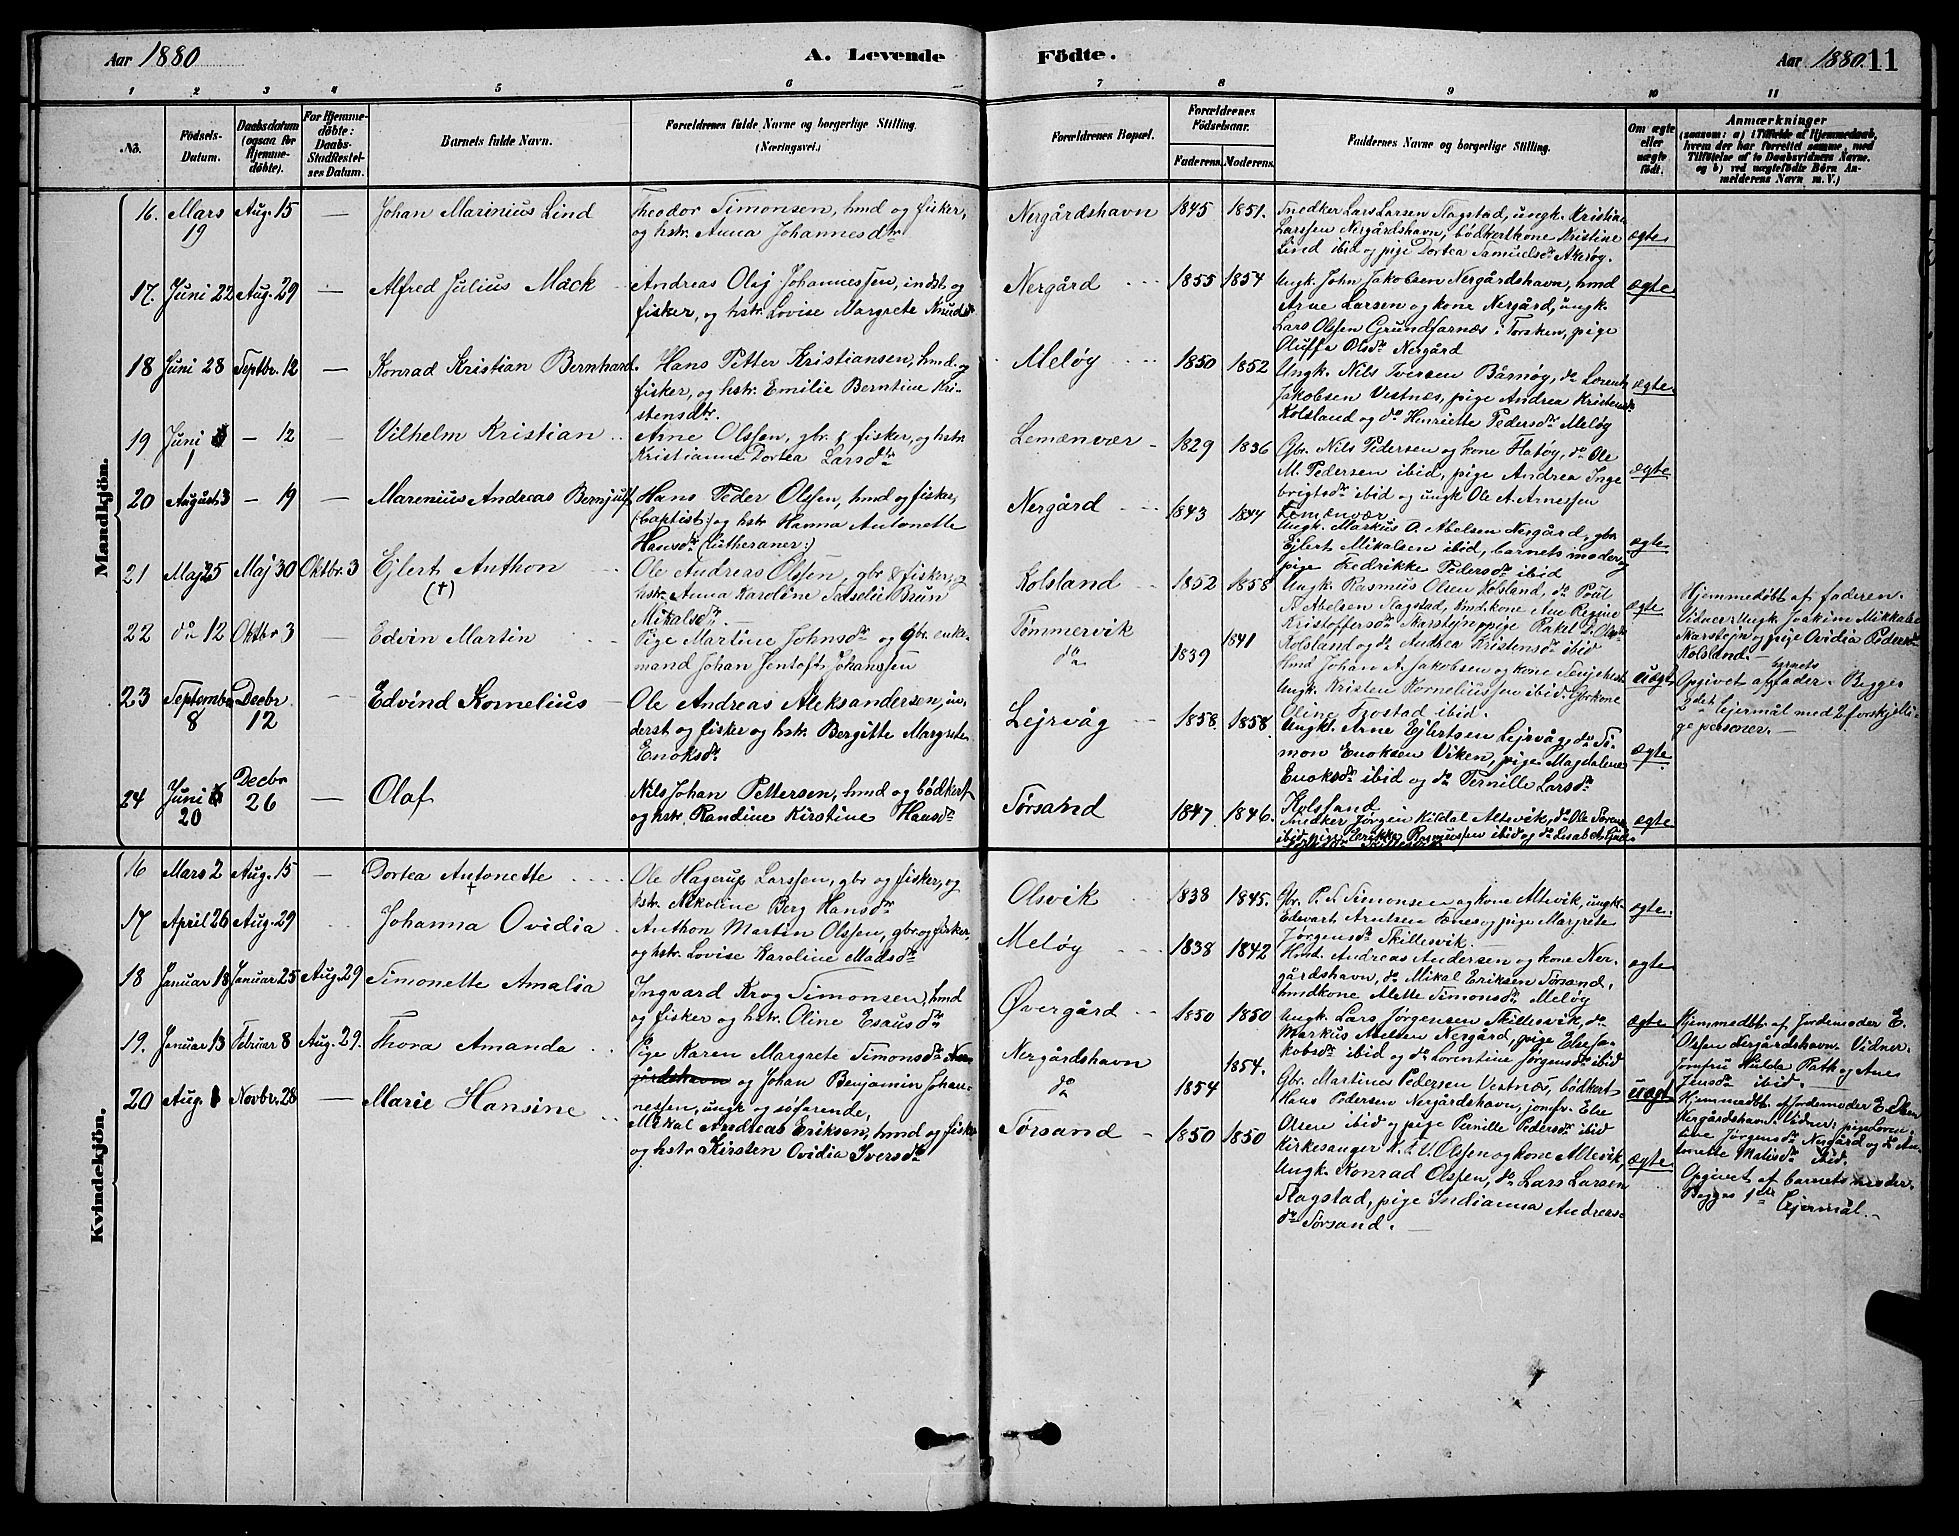 Aar 1880
A. Levende Födte.
Aar 1880. 11
1 2 3 4 5 6 7 8 9 10 11
No.
Födsels-Datum.
Daabsdatum (ogsaa for Hjemme-döbte).
For Hjemme-döbte: Daabs-Stadfæstel-ses Datum.
Barnets fulde Navn.
Forældrenes fulde Navne og borgerlige Stilling.
(Næringsvei.)
Forældrenes Bopæl.
Forældrenes Födselsaar.
Faderens. Moderens.
Faddernes Navne og borgerlige Stilling.
Om ægte eller uægte födt.
Anmærkninger
(saasom: a) i Tilfælde af Hjemmedaab,
hvem der har forrettet samme, med
Tilföielse af to Daabsvidners Navne.
og b) ved uægtefödte Börn An-
melderens Navn m. V.)
Mandkjön.
16. Mars 19 Aug. 15 — Johan Marinius Lind
Theodor Simonsen, hmd og fisker,
og hstr. Anna Johannesdtr
Nergårdshavn 1845 1851.
Snedker Lars Larsen Flagstad, ungk. Kristian
Larssen Nergårdshavn, bödkerkone Kristine
Lind ibid og pige Dortea Samuelsdr Akerøy.
ægte
17. Juni 22 Aug. 29 — Alfred Julius Mack
Andreas Olaj Johannessen, indst og
fisker, og hstr. Lovise Margrete Knudsdr
Nergård 1855 1854
Ungk. John Jakobsen Nergårdshavn, hmd
Arne Larsen og kone Nergård, ungk.
Lars Olssen Grundfarnæs i Torsken, pige
Oluffa Olsdr Nergård
ægte
18 Juni 28 Septbr. 12 — Konrad Kristian Bernhard.
Hans Petter Kristiansen, hmd og
fisker, og hstr. Emilie Berntine Kri-
stensdtr.
Meløy 1850 1852
Ungk. Nils Iversen Bårnøy, do Lorents
Jakobsen Vestnæs, pige Andrea Kristensdr
Kolsland og do Henriette Pedersdr Meløy
ægte
19 Juni 1 — 12 — Vilhelm Kristian
Arne Olssen, gbr. & fisker, og hstr.
Kristianne Dortea Larsdtr
Lemænvær 1829 1836
Gbr. Nils Pedersen og kone Hatøy, do Ole
M. Pedersen ibid, pige Andrea Inge
brigtsdr ibid og ungk Ole A. Arnessen
Lemænvær
ægte
20 August 3 — 19 — Marenius Andreas Bernjulf
Hans Peder Olssen, hmd og fisker,
(baptist) og hstr. Hanna Antonette
Hansdr (lutheraner:)
Nergård 1843 1847
Ungk. Markus O. Abelsen Nergård, gbr.
Ejlert Mikalsen ibid, barnets moder og
pige Fredrikke Pedersdr ibid
ægte
21 Maj 25 Maj 30 Oktbr. 3 Ejlert Anthon
(†)
Ole Andreas Olssen, gbr & fisker, og
hstr. Anna Karoline Brun
Mikalsdr
Kolsland 1852 1858
Ungk. Rasmus Olsen Kolsland, do Poul
A. Abelsen Flagstad, hmdkone Ane Regine
Kristoffersdr Skarstejn og pige Rakel Olsdr
Kolsland og do Andrea Kristensdr ibid
ægte
Hjemmedøbt af faderen.
Vidner: Ungk. Joakim Mikkalse
Skarstejn og pige Ovidia Pedersdr
Kolsland.
22 do 12 Oktbr 3 Edvin Martin
Pige Martine Johnsdr og Gbr. enke-
mand Johan Jentoft Johanssen
Tømmervik
do 1839 1841
Hmd Johan A. Jakobsen og kone
Ungk. Kristen Korneliussen ibid. Gbrkone
Oline Frostad ibid.
uægt
Opgivet af barnets fader. Begges
2det lejermål med 2 forskjelli-
ge personer.
23 September 8 Decbr 12 — Edvind Kornelius
Ole Andreas Aleksandersen, in-
derst og fisker og hstr. Bergitte Margrete
Enoksdr
Lejrvåg 1858. 1858.
Ungk. Arne Ejlertsen Lejrvåg, do Si-
mon Enoksen Viken, pige Magdalene
Enoksdr ibid og do Pernille Larsdr
Kolsland
ægte
24 Juni 20 Decbr 26 — Olaf
Nils Johan Pettersen, hmd og bødker
og hstr. Randine Kirstine Hansdr
Sørsand 1847. 1846.
Snedker Jørgen Kildal Altevik, do Ole Søren
ægte
Kvindekjön.
16 Mars 2 Aug. 15 — Dortea Antonette
†
Ole Hagerup Larssen, gbr og fisker, og
hstr. Nikoline Berg Hansdr
Olsvik 1838 1845.
Gbr. P. S. Simonsen og kone Altevik, ungk.
Edvart Arntsen Fænes og pige Margrete
Jørgensdr Skillesvik.
ægte.
17 April 26 Aug. 29 Johanna Ovidia
Anthon Martin Olssen, gbr. og fisker,
og hstr. Lovise Karoline Madsdr
Meløy 1838 1842
Hmd. Andreas Andersen og kone Ner-
gårdshavn, do Mikal Eriksen Sørsand,
hmdkone Mette Simonsdr Meløy
ægte
18 Januar 18 Januar 25 Aug. 29 Simonette Amalia
Ingvard Krog Simonsen, hmd
og fisker og hstr. Oline Esausdr
Øvergård 1850 1850
Ungk. Lars Jørgensen Skillesvik, do
Markus Abelsen Nergård, pige Else Ja-
kobsdr ibid og do Lorentine Jørgensdr ibid
ægte
Hjemmedbt. af Jordemoder E.
Olsen Nergårdshavn. Vidner.
Jomfru Hulda Path og Ane
Jensdr ibid.
19. Januar 13 Februar 8 Aug. 29. Thora Amanda
Pige Karen Margrete Simonsdr Ner-
gårdshavn og Johan Benjamin Johan-
nessen, ungk og søfarende,
Nergårdshavn 1854.
do 1854
Gbr. Martines Pedersen Vestnæs, bødker
Hans Pedersen Nergårdshavn, jomfr. Else
Olsen ibid og pige Pernille Pedersdr ibid
uægt
Hjemmedbt. af Jordemoder E. Olsen
Nergårdshavn. Vidner: pige Loren-
tine Jørgensdr Nergård og do An-
tonette Matisdr ibid.
Opgivet af barnets moder.
Begges 1ste Lejermål.
20 Aug. 1 Novbr. 28 — Marie Hansine
Mikal Andreas Eriksen, hmd og fisker
og hstr Kirsten Ovidia Iversdr
Sørsand 1850 1850
Kirkesanger H. V. Olssen og kone Altevik,
Ungk. Konrad Olssen, do Lars Larsen
Flagstad, pige Indianna Andreas-
dr Sørsand.
ægte.